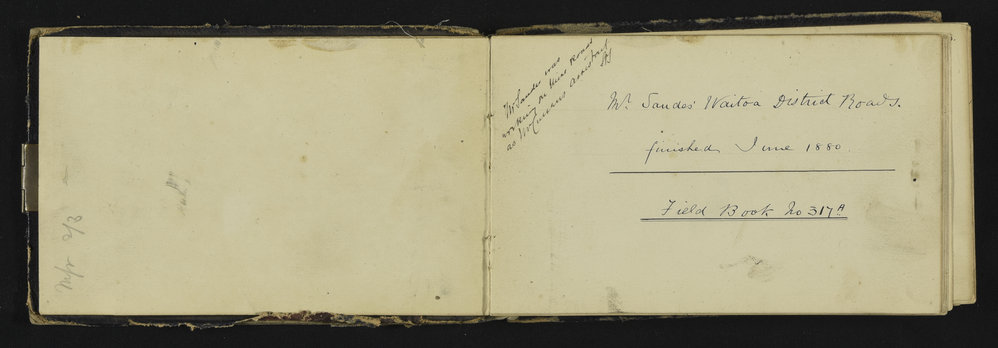 Mr Sandes was
working on these roads
as McCurrens assistant
Mr. Sandes' Waitoa District Roads.
finished June 1880.
Field Book No 317A